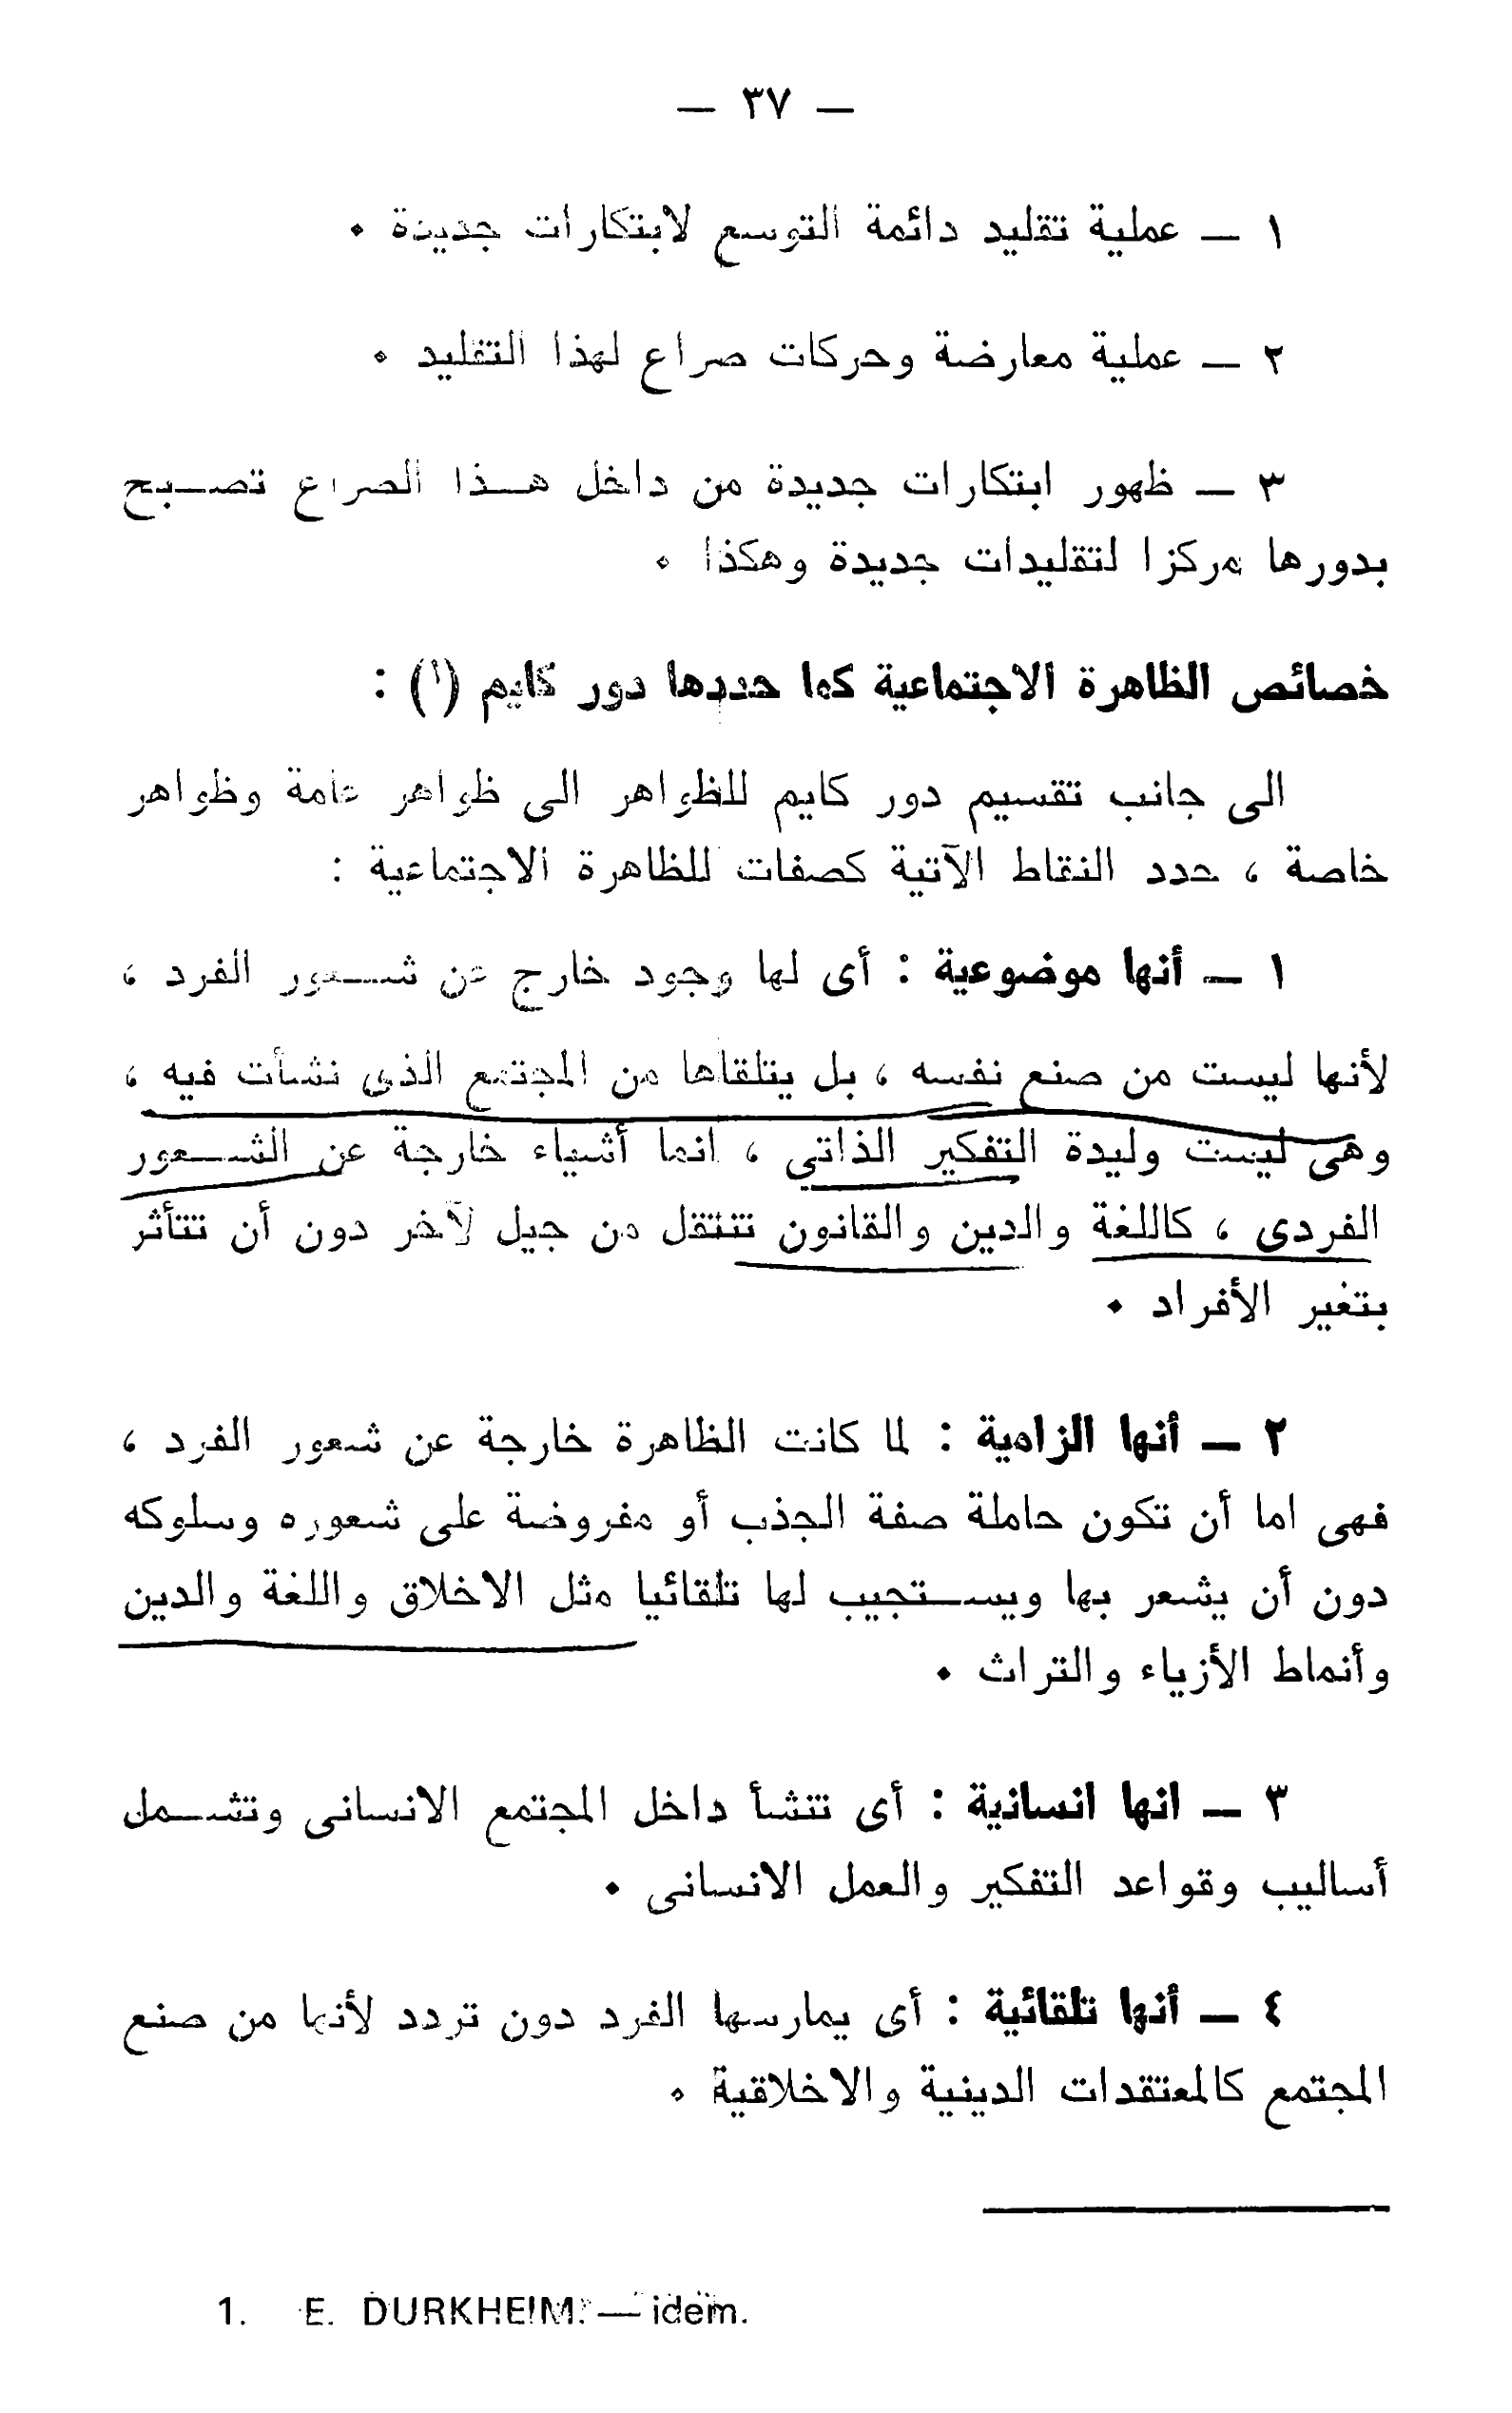 — ٣٧ —
١ — عملية تقليد دائمة التوسع لابتكارات جديدة ٠
٢ — عملية معارضة وحركات صراع لهذا التقليد ٠
٣ — ظهور ابتكارات جديدة من داخل هـذا الصراع تصـبح
بدورها مركزا لتقليدات جديدة وهكذا ٠
خصائص الظاهرة الاجتماعية كما حددها دور كايم (١) :
الى جانب تقسيم دور كايم للظواهر الى ظواهر عامة وظواهر
خاصة ، حدد النقاط الآتية كصفات للظاهرة الاجتماعية :
١ — أنها موضوعية : أى لها وجود خارج عن شـعور الفرد ،
لأنها ليست من صنع نفسه ، بل يتلقاها من المجتمع الذى نشأت فيه ،
وهى ليست وليدة التفكير الذاتي ، انما أشياء خارجة عن الشـعور
الفردى ، كاللغة والدين والقانون تنتقل من جيل لآخر دون أن تتأثر
بتغير الأفراد ٠
٢ — أنها الزامية : لما كانت الظاهرة خارجة عن شعور الفرد ،
فهى اما أن تكون حاملة صفة الجذب أو مفروضة على شعوره وسلوكه
دون أن يشعر بها ويسـتجيب لها تلقائيا مثل الاخلاق واللغة والدين
وأنماط الأزياء والتراث ٠
٣ — انها انسانية : أى تنشأ داخل المجتمع الانسانى وتشـمل
أساليب وقواعد التفكير والعمل الانسانى ٠
٤ — أنها تلقائية : أى يمارسها الفرد دون تردد لأنها من صنع
المجتمع كالمعتقدات الدينية والاخلاقية ٠
1. E. DURKHEIM. — idem.